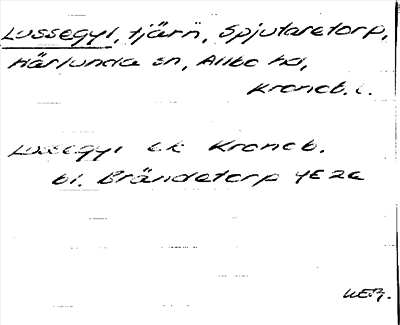 Lussegyl, tjärn, Spjutaretorp,
Härlunda sn, Allbo hd,
Kronob. l.
Lussegyl ek Kronob.
bl. Brändetorp 4E2e